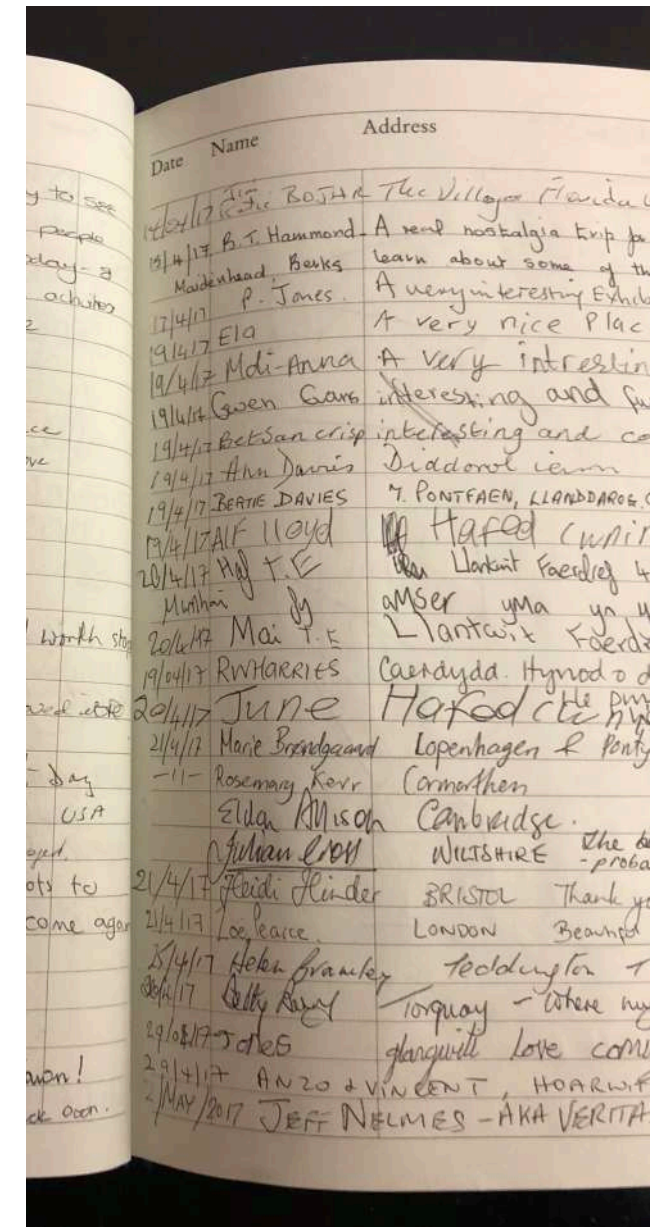 y to see
people
oday - a
ce
ove
worth stop
Day
USA
ots to
come again
oon!
ck soon.
Date Name Address
14/04/17 BOJHR The Villages Florida U
15/4/17 B.T. Hammond A real nostalgia trip for
Maidenhead, Berks learn about some of th
17/4/17 P. Jones. A very interesting Exhib
19/4/17 Ela A very nice Plac
19/4/17 Mdi-Anna A very intrestin
19/4/17 Gwen interesting and fu
19/4/17 Betsan crisp interesting and co
19/4/17 Ann Davies Diddorol iawn
19/4/17 BERTIE DAVIES 7. PONTFAEN, LLANDDAROG.
19/4/17 Alf lloyd Hafod
20/4/17 Haf T.E Llantwit Faerdref
amser yma yn
20/4/17 Mai T.E Llantwit Faerdr
19/04/17 RWHARRIES Caerdydd. Hynod o d
20/4/17 June Hafod
21/4/17 Marie Brøndgaard Copenhagen & Ponty
-11- Rosemary Kerr Carmarthen
Eldon Allison Cambridge.
Julian WILTSHIRE The be
- proba
21/4/17 Heidi Hinder BRISTOL Thank yo
21/4/17 Zoe Pearce. LONDON
25/4/17 Helen Bramley Teddington T
Betty Torquay - where my
Jones glangwili love comi
29/4/17 ANZO & VINCENT, HOARWI
MAY/2017 JEFF NELMES - AKA VERITA